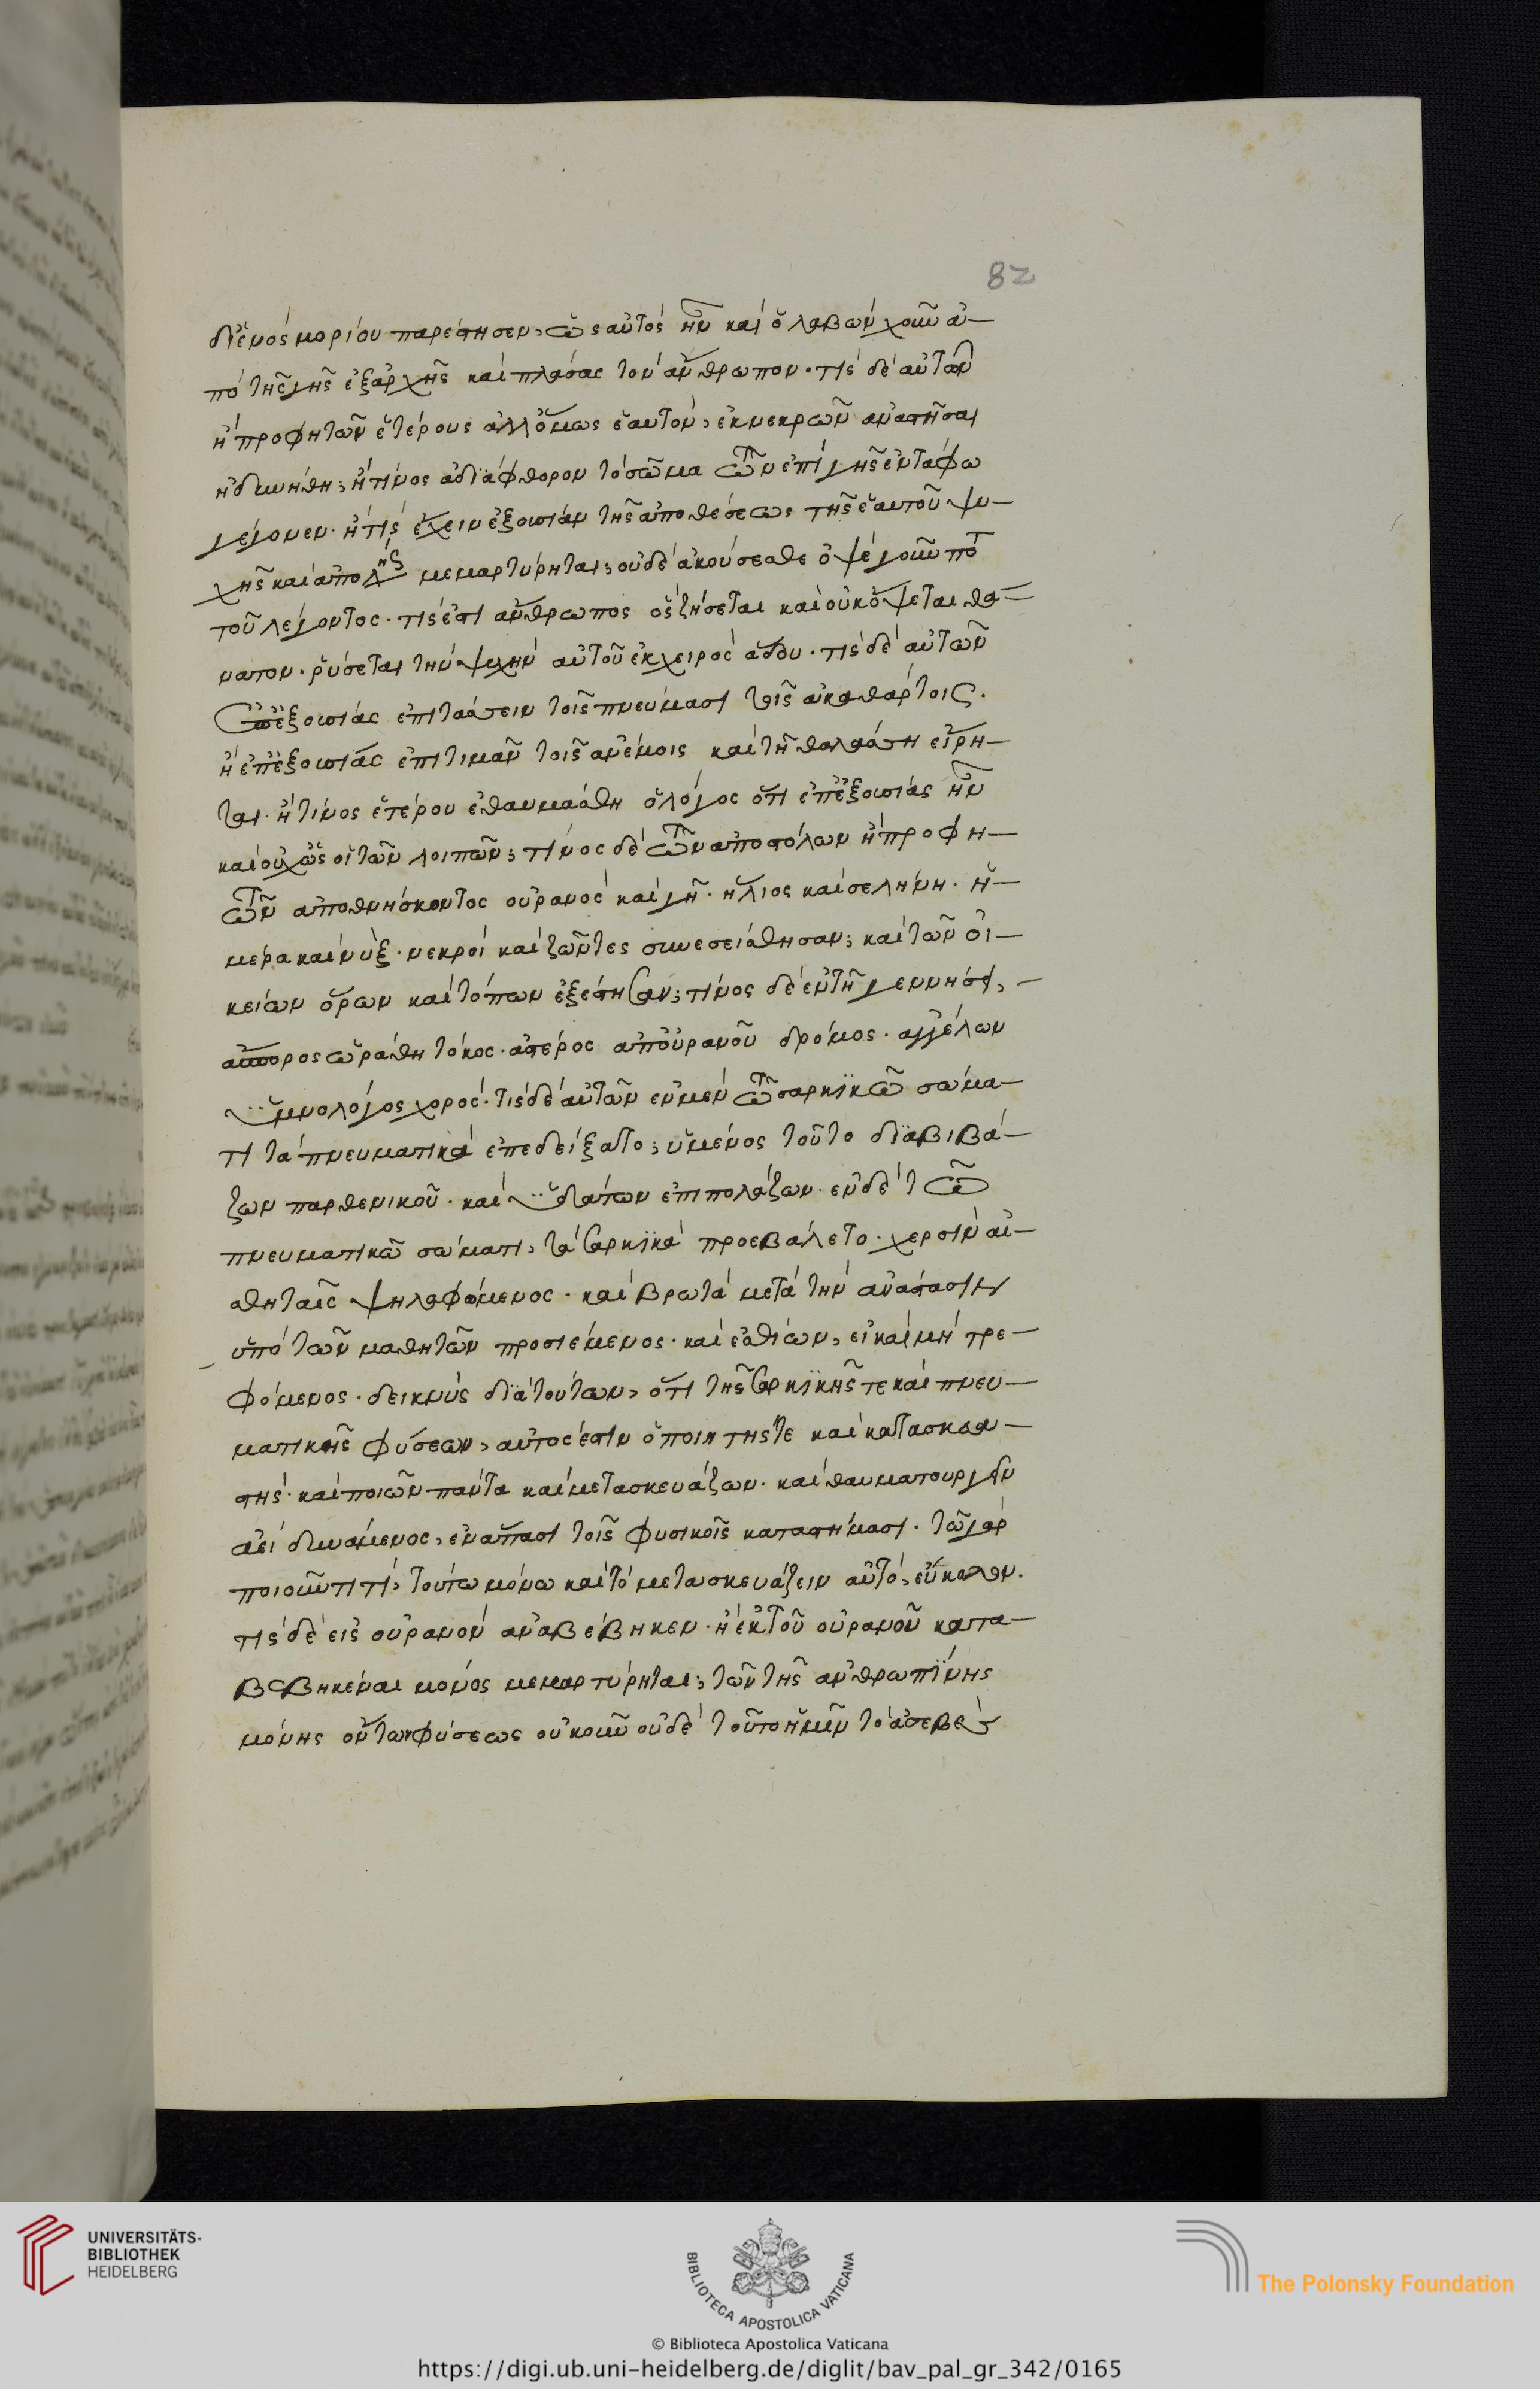 82
δι' ἑνὸς μορίου παρέστησεν, ὡς αὐτὸς ἦν καὶ ὁ λαβὼν χοῦν ἀ-
πὸ τῆς γῆς ἐξ ἀρχῆς καὶ πλάσας τὸν ἄνθρωπον. τίς δὲ αὐτῶν
ἢ προφητῶν ἑτέρους ἀλλ' ὅμως ἑαυτὸν, ἐκ νεκρῶν ἀναστῆσαι
ἠδυνήθη; ἢ τίνος ἀδιάφθορον τὸ σῶμα τῶν ἐπὶ γῆς ἐν τάφω
γέγονεν. ἢ τίς ἔχειν ἐξουσίαν τῆς ἀποθέσεως τῆς ἑαυτοῦ ψυ-
χῆς καὶ ἀπολήψ μεμαρτύρηται; οὐδὲ ἀκούσεσθε ὀψέ γοῦν ποτὲ
τοῦ λέγοντος. τίς ἐστι ἄνθρωπος ὃς ζήσεται καὶ οὐκ ὄψεται θά-
νατον. ῥύσεται τὴν ψυχὴν αὐτοῦ ἐκ χειρὸς ἅδου. τίς δὲ αὐτῶν
ἐπ' ἐξουσίας ἐπιτάσσειν τοῖς πνεύμασι τοῖς ἀκαθάρτοις.
ἢ ἐπ' ἐξουσίας ἐπιτιμᾶν τοῖς ἀνέμοις καὶ τῇ θαλάσση εἴρη-
ται. ἢ τίνος ἑτέρου ἐθαυμάσθη ὁ λόγος ὅτι ἐπ' ἐξουσίας ἦν
καὶ οὐχ ὡς οἱ τῶν λοιπῶν; τίνος δὲ τῶν ἀποστόλων ἢ προφη-
τῶν ἀποθνήσκοντος οὐρανὸς καὶ γῆ. ἥλιος καὶ σελήνη. ἡ-
μέρα καὶ νὺξ. νεκροὶ καὶ ζῶντες συνεσείσθησαν; καὶ τῶν οἰ-
κείων ὅρων καὶ τόπων ἐξέστησαν; τίνος δὲ ἐν τῇ γεννήσει,
ἄσπορος ὡράθη τόκος. ἀστέρος ἀπ' οὐρανοῦ δρόμος. ἀγγέλων
ὑμνολόγος χορός. τίς δὲ αὐτῶν ἐν μὲν τῶ σαρκικῶ σώμα-
τι τὰ πνευματικὰ ἐπεδείξατο; ὑμένος τοῦτο διαβιβά-
ζων παρθενικοῦ. καὶ ὑδάτων ἐπιπολάζων. ἐν δὲ τῶ
πνευματικῶ σώματι, τὰ σαρκικὰ προεβάλετο. χερσὶν αἰ-
σθηταῖς ψηλαφώμενος. καὶ βρωτὰ μετὰ τὴν ἀνάστασιν
ὑπὸ τῶν μαθητῶν προσιέμενος. καὶ ἐσθίων, εἰ καὶ μὴ τρε-
φόμενος. δεικνὺς διὰ τούτων, ὅτι τῆς σαρκικῆς τε καὶ πνευ-
ματικῆς φύσεων, αὐτὸς ἐστιν ὁ ποιητής τε καὶ κατασκευα-
στής. καὶ ποιῶν πάντα καὶ μετασκευάζων. καὶ θαυματουργεῖν
ἀεὶ δυνάμενος, ἐν ἅπασι τοῖς φυσικοῖς καταστήμασι. τῶ γὰρ
ποιοῦντι τί, τούτω μόνω καὶ τὸ μετασκευάζειν αὐτὸ, εὔκολον.
τίς δὲ εἰς οὐρανὸν ἀναβέβηκεν. ἢ ἐκ τοῦ οὐρανοῦ κατα-
βεβηκέναι μόνος μεμαρτύρηται; τῶν τῆς ἀνθρωπίνης
μόνης ὄντων φύσεως οὐκοῦν οὐδὲ τοῦτο ἡμῖν τὸ ἀσεβὲς
UNIVERSITÄTS-
BIBLIOTHEK
HEIDELBERG
BIBLIOTECA APOSTOLICA VATICANA
The Polonsky Foundation
© Biblioteca Apostolica Vaticana
https://digi.ub.uni-heidelberg.de/diglit/bav_pal_gr_342/0165